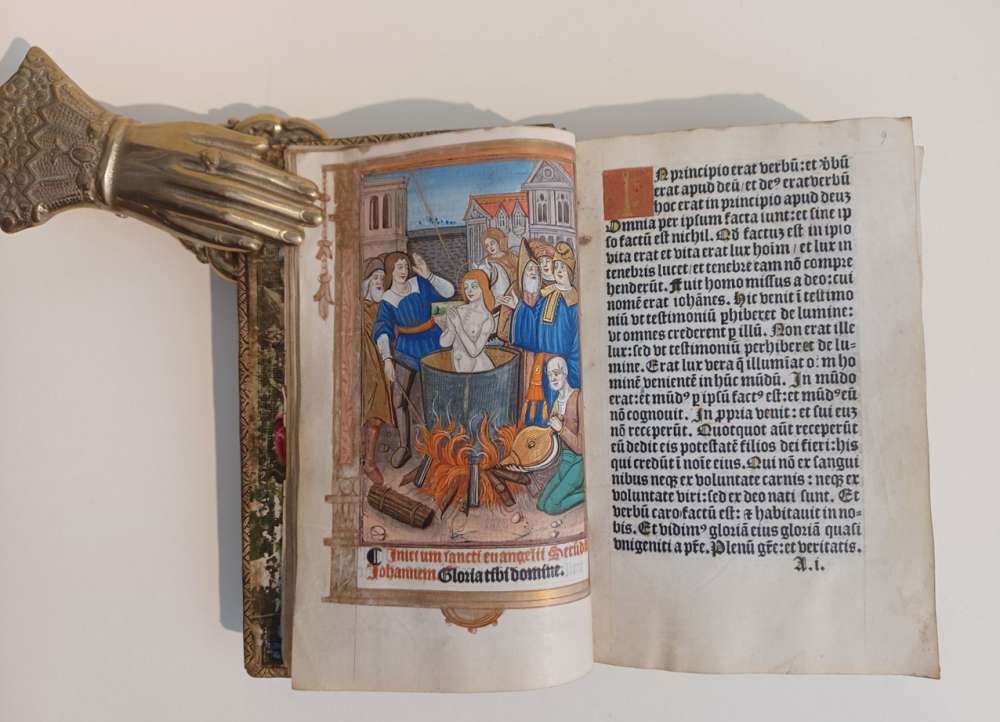 Inicium sancti euangelii Secūdū
Johannem Gloria tibi domine.
9
IN principio erat verbū: et v̄bū
erat apud deū / et deꝰ erat verbū
hoc erat in principio apud deuz
Omnia per ipsum facta sunt: et sine ip
so factū est nichil. Qd̄ factuz est in ipso
vita erat et vita erat lux hoīm / et lux in
tenebris lucet / et tenebre eam nō compre
henderūt. Fuit homo missus a deo: cui
nomē erat iohānes. Hic venit ī testimo
niū vt testimoniū ꝑhiberet de lumine:
vt omnes crederent ꝑ illū. Non erat ille
lux: sed vt testimoniū perhiberet de lu-
mine. Erat lux vera q̄ illumīat o:m ho
minē venientē in hūc mūdū. In mūdo
erat: et mūdꝰ ꝑ ipsū factꝰ est: et mūdꝰ eū
nō cognouit. In ꝓpria venit: et sui euz
nō receperūt. Quotquot aūt receperūt
eū dedit eis potestatē filios dei fieri: his
qui credūt ī noīe eius. Qui nō ex sangui
nibus neqꝫ ex voluntate carnis: neqꝫ ex
voluntate viri: sed ex deo nati sunt. Et
verbū caro factū est: ⁊ habitauit in no-
bis. Et vidimꝰ gloriā eius gloriā quasi
vnigeniti a pr̄e. Plenū gr̄e: et veritatis.
A.i.